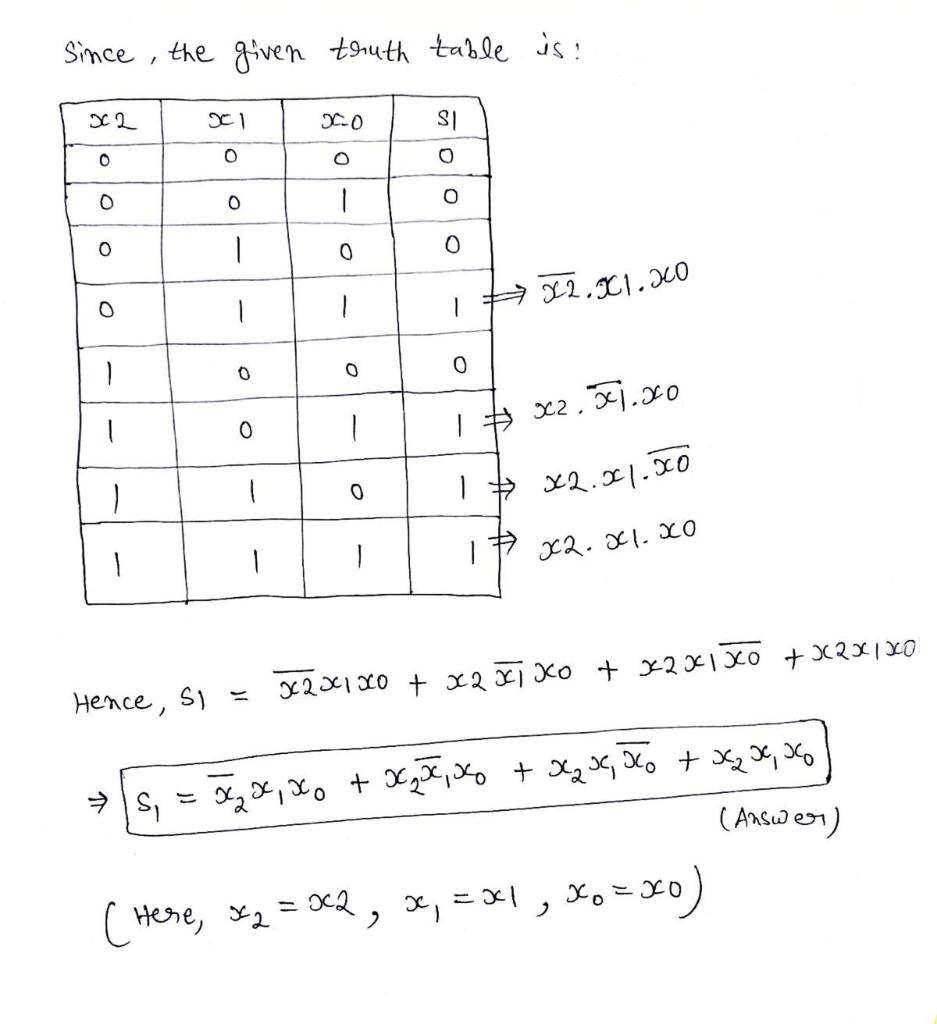 Since, the given truth table is:
x2 x1 x0 S1
0 0 0 0
0 0 1 0
0 1 0 0
0 1 1 1 ⇒ x̅2̅.x1.x0
1 0 0 0
1 0 1 1 ⇒ x2.x̅1̅.x0
1 1 0 1 ⇒ x2.x1.x̅0̅
1 1 1 1 ⇒ x2.x1.x0
Hence, S1 = x̅2̅x1x0 + x2x̅1̅x0 + x2x1x̅0̅ + x2x1x0
⇒ S₁ = x̅₂x₁x₀ + x₂x̅₁x₀ + x₂x₁x̅₀ + x₂x₁x₀
(Answer)
(Here, x₂ = x2, x₁ = x1, x₀ = x0)